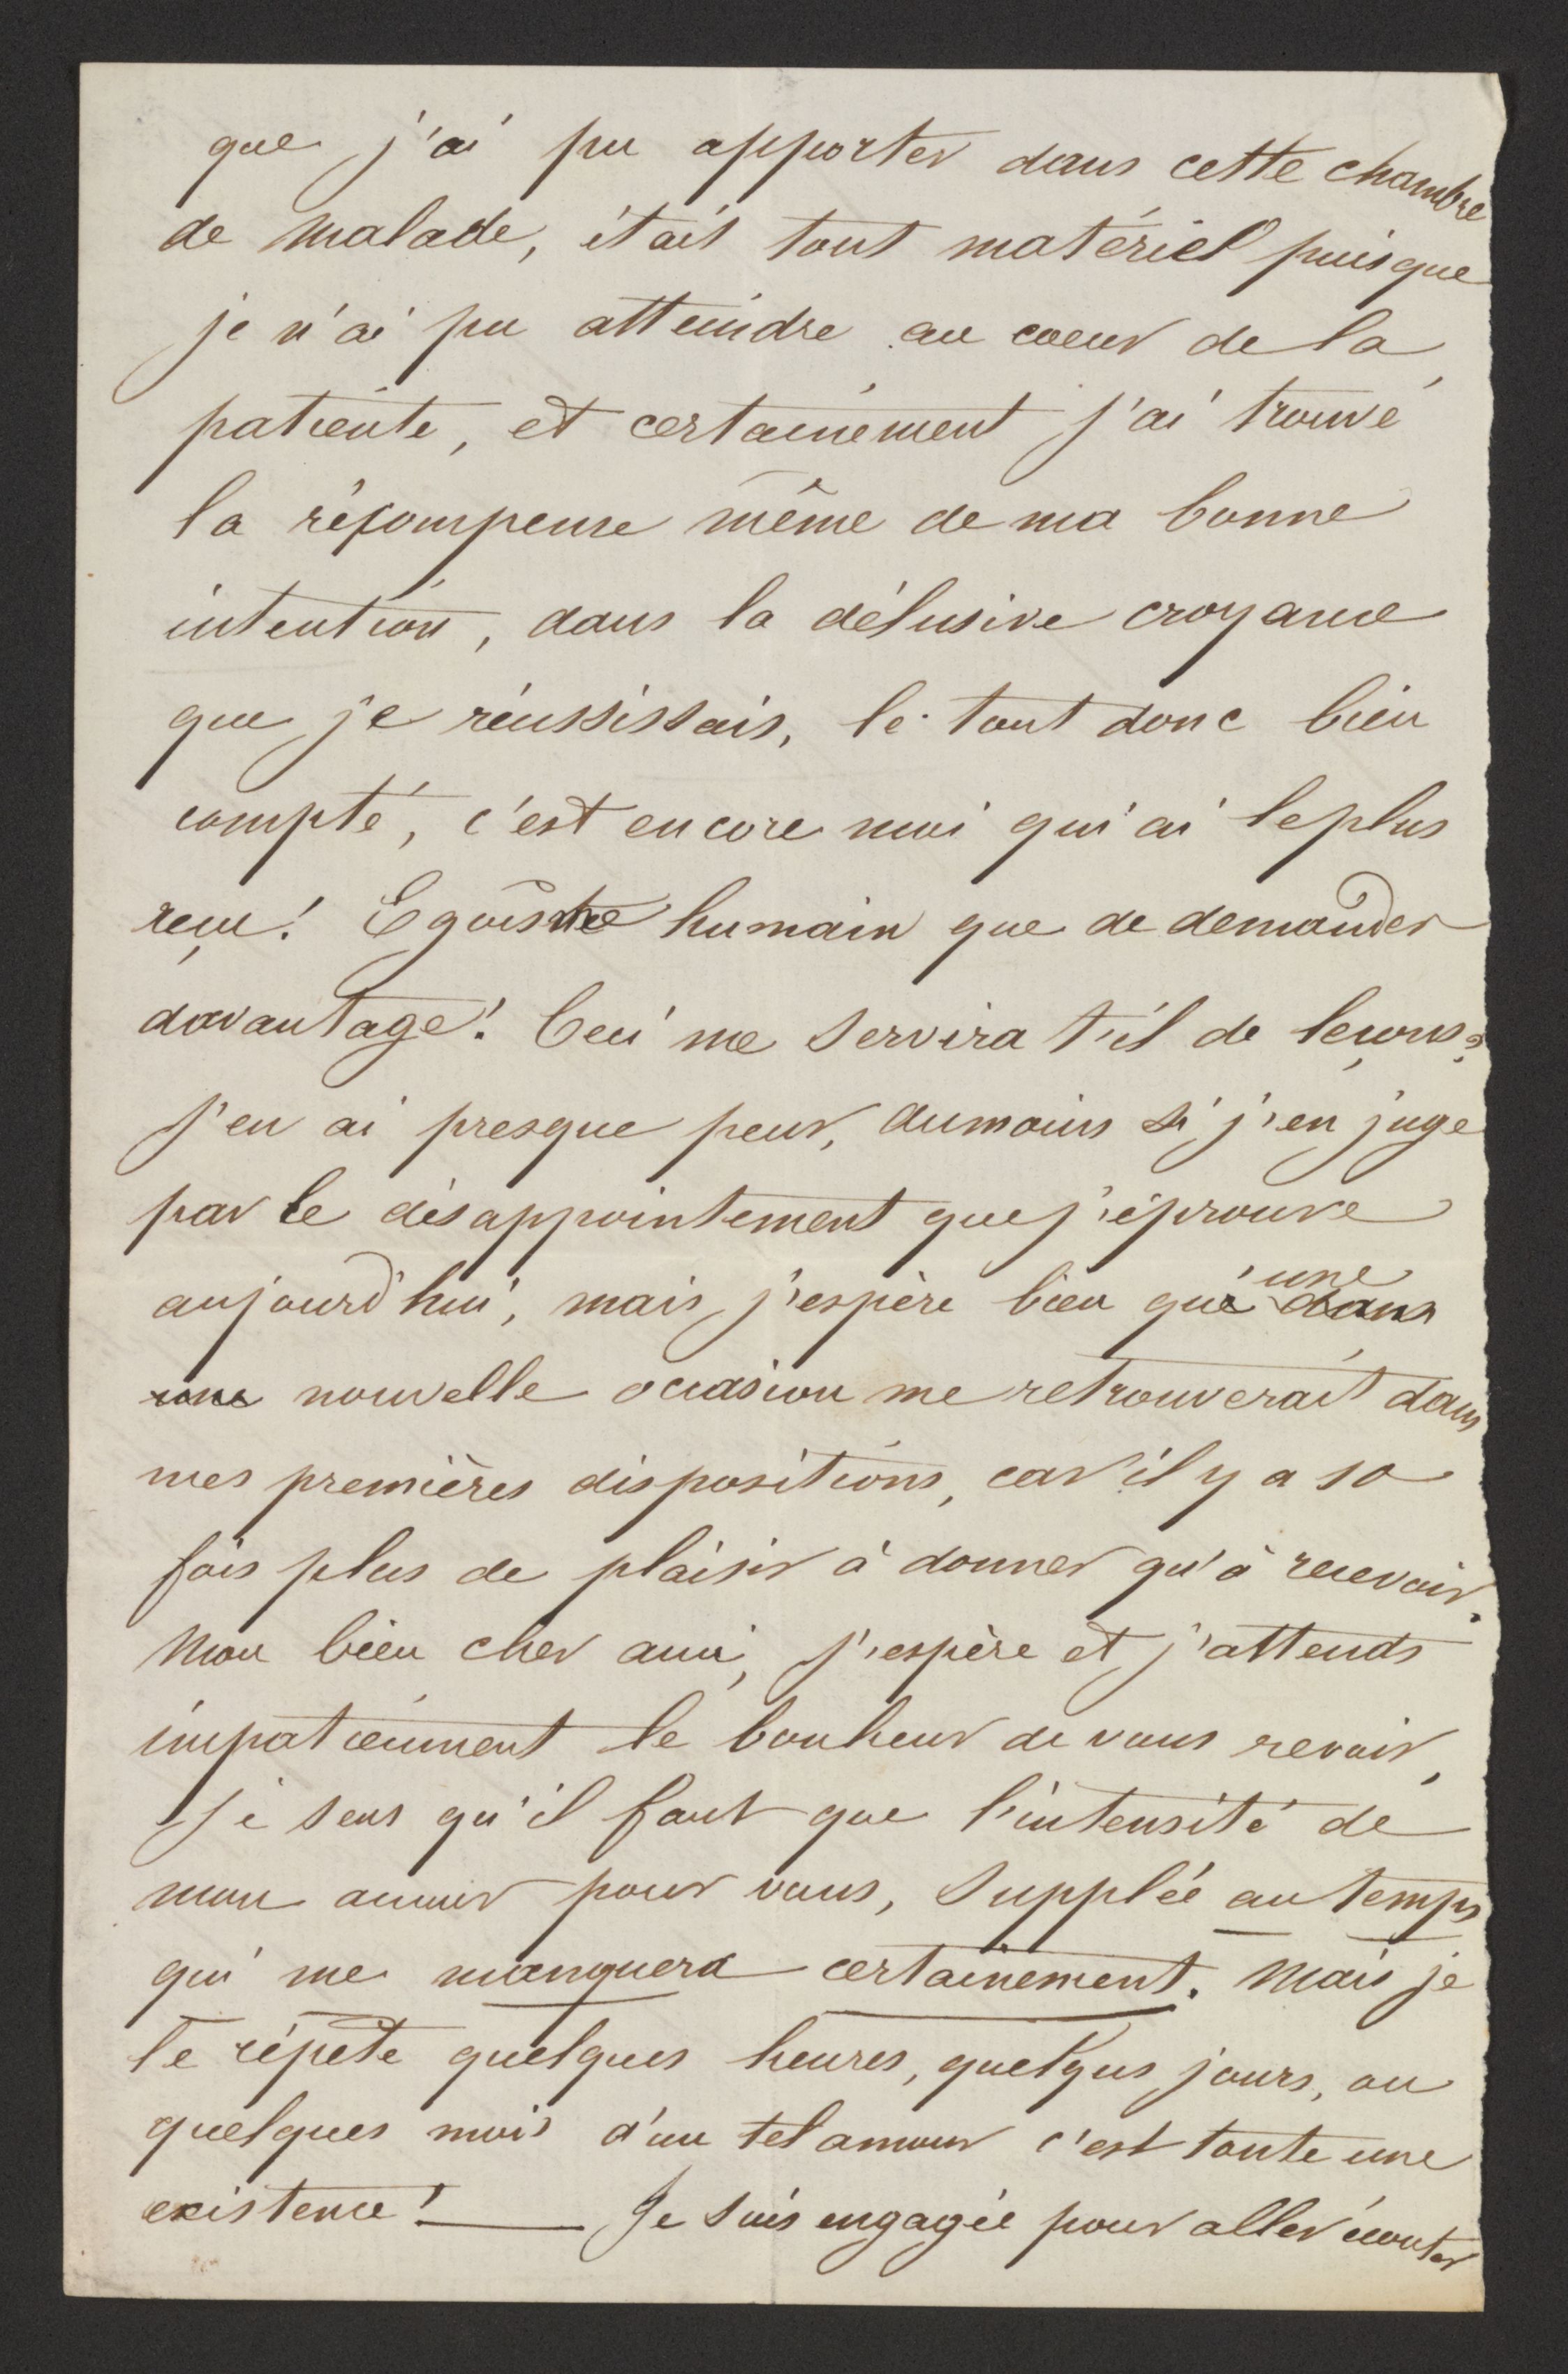 que j'ai pu apporter dans cette chambre
de malade, était tout matériel puisque
je n'ai pu atteindre au coeur de la
patiente, et certainement j'ai trouvé
la réçompense même de ma bonne
intention, dans la délusive croyance
que je réussissais, le tout donc bien
compté, c'est encore moi qui ai le plus
reçu! Egoïsme humain que de demander
davantage! Ceci me servira t'il de leçons?
J'en ai presque peur, dumoins si j'en juge
par le désappointement que j'éprouve
aujourd'hui, mais j'espère bien qu'une dans
une nouvelle occasion me retrouverait dans
mes premières dispositions, car il y a 10
fois plus de plaisir à donner qu'à recevoir.
Mon bien cher ami, j'espère et j'attends
impatiemment le bonheur de vous revoir,
Je sens qu'il faut que l'intensité de
mon amour pour vous, supplée au temps
qui me manquera certainement. Mais je
le répète quelques heures, quelqus jours, ou
quelques mois d'un tel amour c'est toute une
existence! — Je suis engagée pour aller écouter